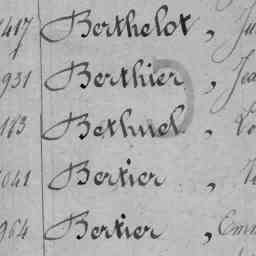 417 Berthelot, Ju
931 Berthier, Jea
113 Bethuel, Lo
041 Bertier,
964 Bertier, Emm